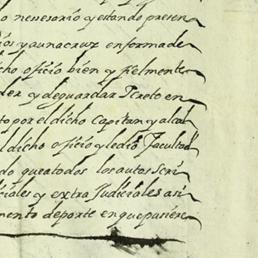 o nesesorio y estando presen
ios y a una cruz en forma de
icho oficio bien y fielmente
der y de guardar secreto en
to por el dicho Capitan y alcal
l dicho oficio y le dio facultad
do que a todos los autos Scri
ciales y extra Judiciales asi
mento de porte en que pusiere